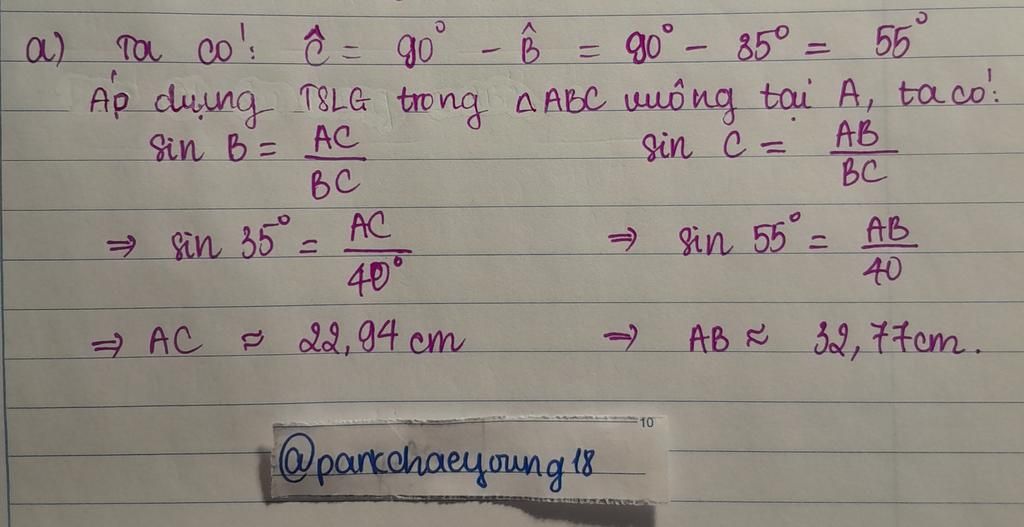 a) Ta có: Ĉ = 90° - B̂ = 90° - 35° = 55°
Áp dụng TSLG trong △ABC vuông tại A, ta có:
sin B = AC/BC sin C = AB/BC
⇒ sin 35° = AC/40° ⇒ sin 55° = AB/40
⇒ AC ≈ 22,94 cm ⇒ AB ≈ 32,77cm.
10
@parkchaeyoung18